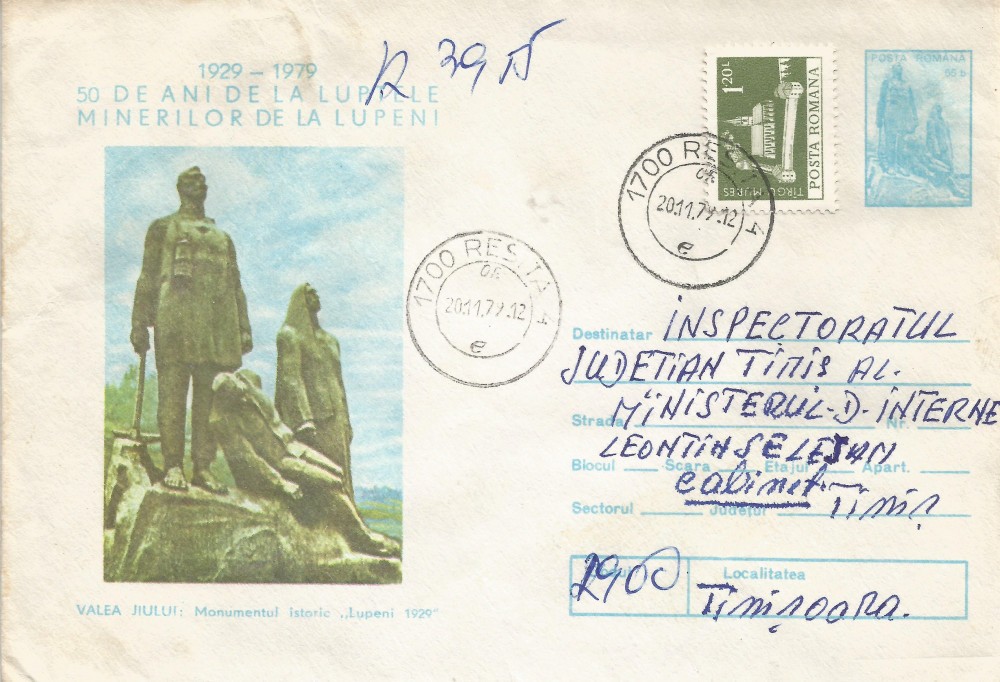 1929 - 1979
50 DE ANI DE LA LUPTELE
MINERILOR DE LA LUPENI
R 3915
1,20L
TÎRGU MUREȘ
POSTA ROMANA
POSTA ROMANA
55 b
1700 REȘIȚA 4
OF.
20.11.79.12
e
1700 REȘIȚA 4
OF.
20.11.79.12
e
Destinatar INSPECTORATUL
JUDETIAN TIMIS AL.
Strada MINISTERUL-D-INTERNE Nr.
LEONTIN SELEJAN
Blocul Scara Etajul Apart.
cabinet
Sectorul Județul Timiș
1900 Localitatea
Timișoara.
VALEA JIULUI: Monumentul istoric „Lupeni 1929"